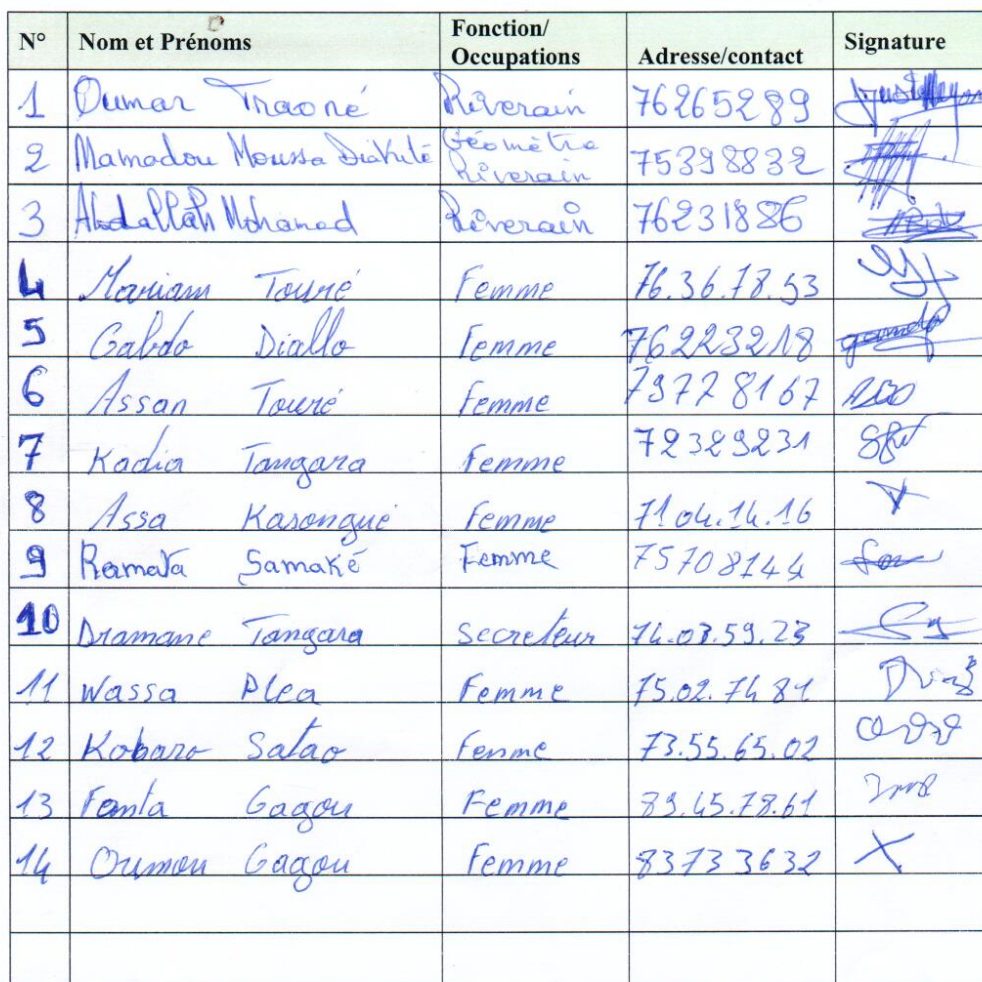 N° Nom et Prénoms Fonction/ Occupations Adresse/contact Signature
1 Oumar Traoré Riverain 76265289
2 Mamadou Moussa Diakité Géomètre Riverain 75398832
3 Abdallah Mohamed Riverain 76231886
4 Mariam Touré Femme 76.36.78.53
5 Gabdo Diallo Femme 76223218
6 Assan Touré Femme 79728167
7 Kadia Tangara Femme 72329231
8 Assa Kasongué Femme 71.04.14.16
9 Ramata Samaké Femme 75708144
10 Dramane Tangara Secreteur 74.07.59.23
11 Wassa Plea Femme 75.02.74 81
12 Kobaro Satao Femme 73.55.65.02
13 Fanta Gagou Femme 89.45.78.61
14 Oumou Gagou Femme 83733632